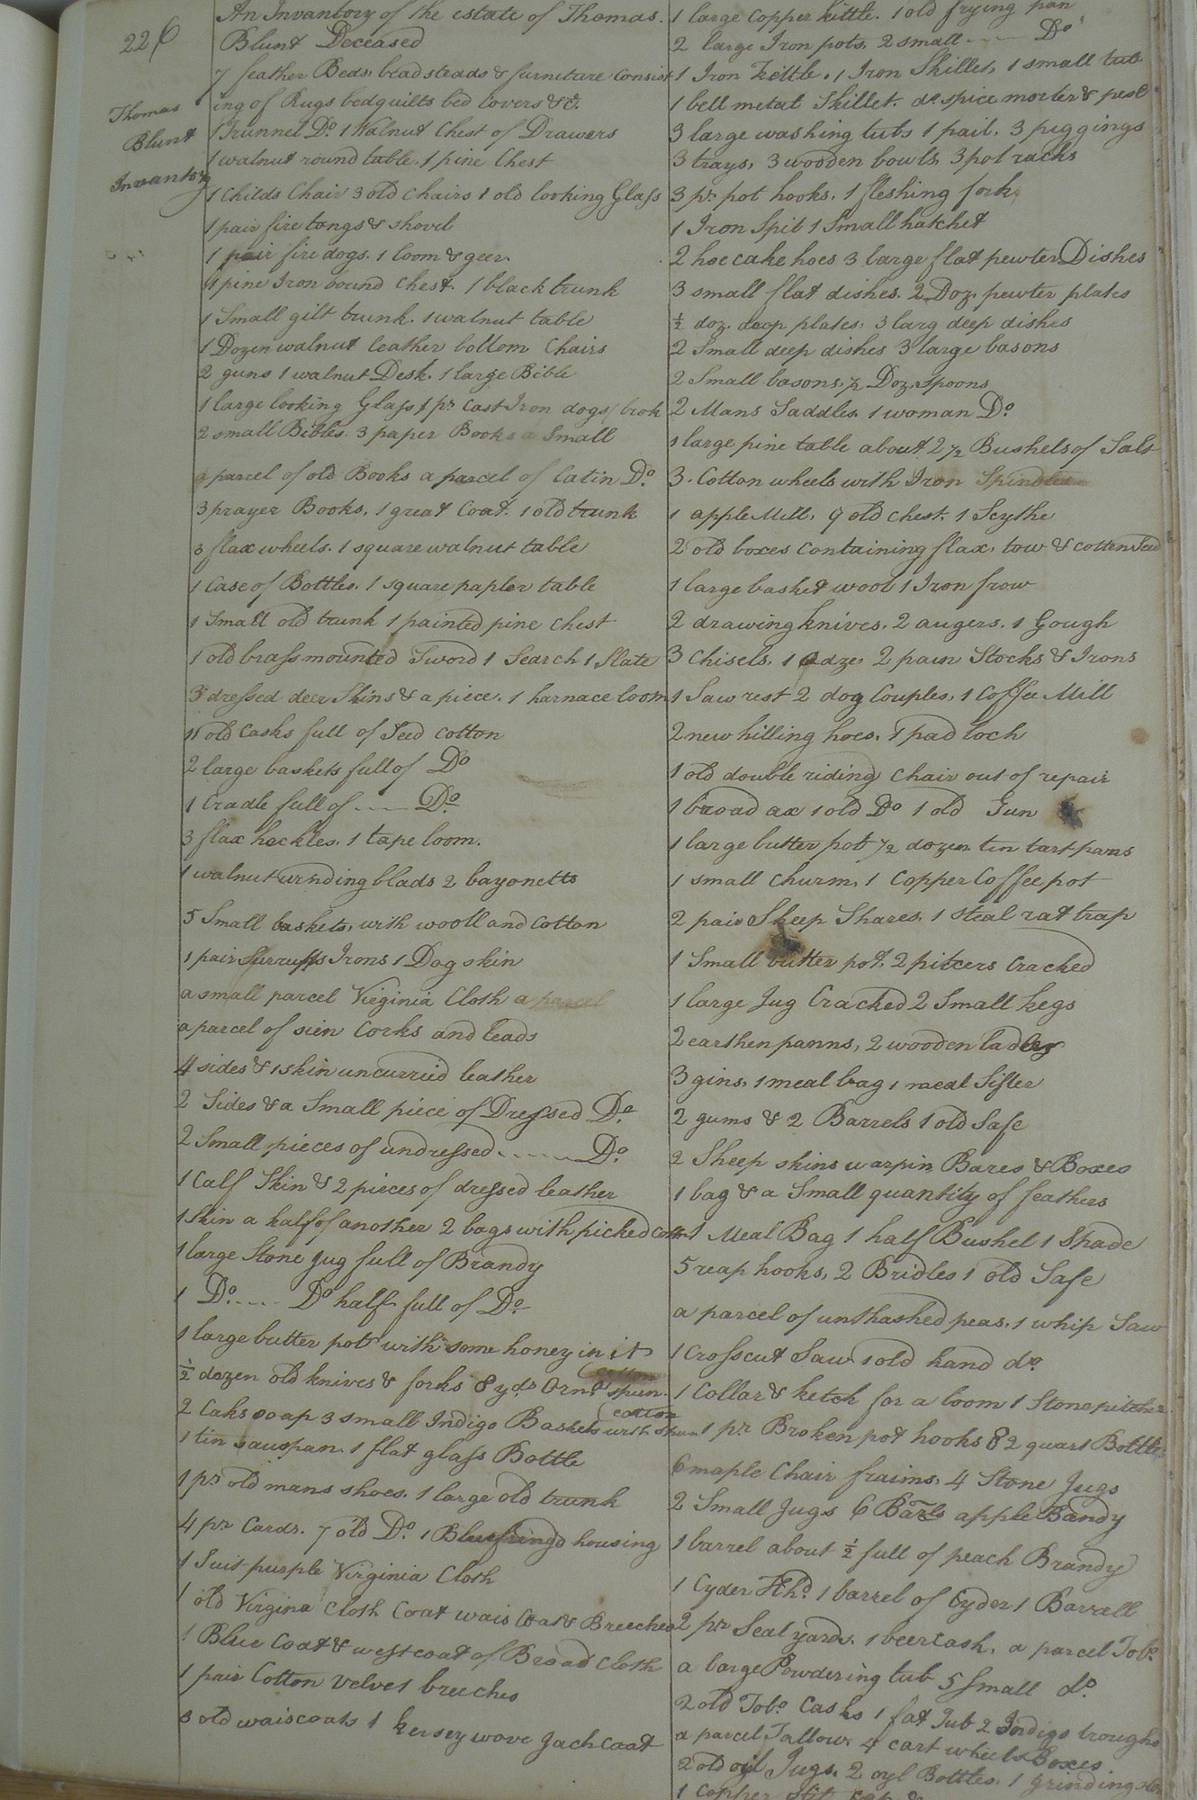 226
Thomas
Blunt
Invantory
An Invantory of the estate of Thomas
Blunt Deceased
7 feather Beds, beadsteads & furniture consist
ing of Rugs bedquilts bed Covers &c.
1 Trunnel Do 1 Walnut Chest of Drawers
1 walnut round table. 1 pine Chest
1 Childs Chair 3 old Chairs 1 old looking Glass
1 pair fire tongs & shovel
1 pair fire dogs. 1 loom & geer.
1 pine Iron bound Chest. 1 black trunk
1 Small gilt trunk. 1 walnut table
1 Dozen walnut leather bottom Chairs
2 guns 1 walnut Desk. 1 large Bible
1 large looking Glass 1 pr Cast Iron dogs, brok
2 small Bibles. 3 paper Books a Small
a parcel of old Books a parcel of latin Do.
3 prayer Books, 1 great Coat. 1 old trunk
3 flax wheels. 1 square walnut table
1 Case of Bottles. 1 square papler table
1 Small old trunk 1 painted pine Chest
1 old brass mounted Sword 1 Search 1 Slate
3 dressed deer Skins & a piece. 1 harnace loom
11 old Casks full of Seed Cotton
2 large baskets full of Do
1 Cradle full of ---- Do
3 flax heckles. 1 tape loom.
1 walnut winding blads 2 bayonetts
5 Small baskets, with wooll and Cotton
1 pair Irons 1 Dog skin
a small parcel Virginia Cloth a parcel
a parcel of sein Corks and leads
4 sides & 1 skin uncurried leather
2 Sides & a Small piece of Dressed Do.
2 Small pieces of undressed ------ Do.
1 Calf Skin & 2 pieces of dressed leather
1 Skin a half of another 2 bags with picked Cotn
1 large Stone Jug full of Brandy
1 Do. ---- Do half full of Do
1 large butter pot with some honey in it
½ dozen old knives & forks 8 yds Ornb spun
cotton
2 Caks soap 3 small Indigo Baskets with spun
cotton
1 tin sauspan. 1 flat glass Bottle
1 pr old mans shoes. 1 large old trunk
4 pr Cards. 7 old Do. 1 Blue fringd housing
1 Suit purple Virginia Cloth
1 old Virgina Cloth Coat wais Coat & Breeches
1 Blue Coat & westcoat of Broad Cloth
1 pair Cotton velvet breeches
3 old waiscoats 1 kersey wove Jach Coat
1 large Copper kittle. 1 old frying pan
2 large Iron pots, 2 small ---- Do
1 Iron Kettle, 1 Iron Skillet, 1 small tub
1 bell metal Skillet. do spice morter & pesl
3 large washing tubs 1 pail. 3 piggings
3 trays, 3 wooden bowls, 3 pot racks
3 pr pot hooks. 1 fleshing fork,
1 Iron Spit 1 Small hatchet
2 hoe cake hoes 3 large flat pewter Dishes
3 small flat dishes. 2 Doz. pewter plates
½ doz. deep plates. 3 larg deep dishes
2 Small deep dishes 3 large basons
2 Small basons, ½ Doz. Spoons
2 Mans Saddles, 1 woman Do
1 large pine table about 2 ½ Bushels of Salt
3. Cotton wheels with Iron Spindles
1 apple Mill, 9 old Chest. 1 Scythe
2 old boxes Containing flax, tow & cotton Seed
1 large basket wool 1 Iron frow
2 drawing knives. 2 augers. 1 Gough
3 Chisels, 1 adze, 2 pain Stocks & Irons
1 Saw rest 2 dog Couples, 1 Coffee Mill
2 new hilling hoes. 1 pad lock
1 old double riding Chair out of repair
1 broad ax 1 old Do 1 old Gun
1 large butter pot ½ dozen tin tart pans
1 small Churm, 1 Copper Coffee pot
2 pair Sheep Shares, 1 steal rat trap
1 Small butter pot. 2 pitcers Cracked
1 large Jug Cracked 2 Small kegs
2 earthen panns, 2 wooden
3 gins, 1 meal bag 1 meal Sifter
2 gums & 2 Barrels 1 old Safe
2 Sheep skins warpin Bares & Boxes
1 bag & a Small quantity of feathers
1 Meal Bag 1 half Bushel 1 Spade
5 reap hooks, 2 Bridles 1 old Safe
a parcel of unthashed peas, 1 whip Saw
1 Crosscut Saw 1 old hand do.
1 Collar & ketch for a loom 1 Stone pitcher
1 pr Broken pot hooks 8 2 quart Bottles
6 maple Chair fraims. 4 Stone Jugs
2 Small Jugs 6 Barls apple Bandy
1 barrel about ½ full of peach Brandy
1 Cyder Hhd. 1 barrel of Cyder 1 Barrall
2 pr Seal yards. 1 beer Cask. a parcel Tobo
a large Powdering tub 5 Small do.
2 old Tobo Casks 1 fat Tub 2 Indigo troughs
a parcel Tallow. 4 cart wheels Boxes
2 old oyl Jugs. 2 oyl Bottles. 1 grinding
1 Copper Still Cap &